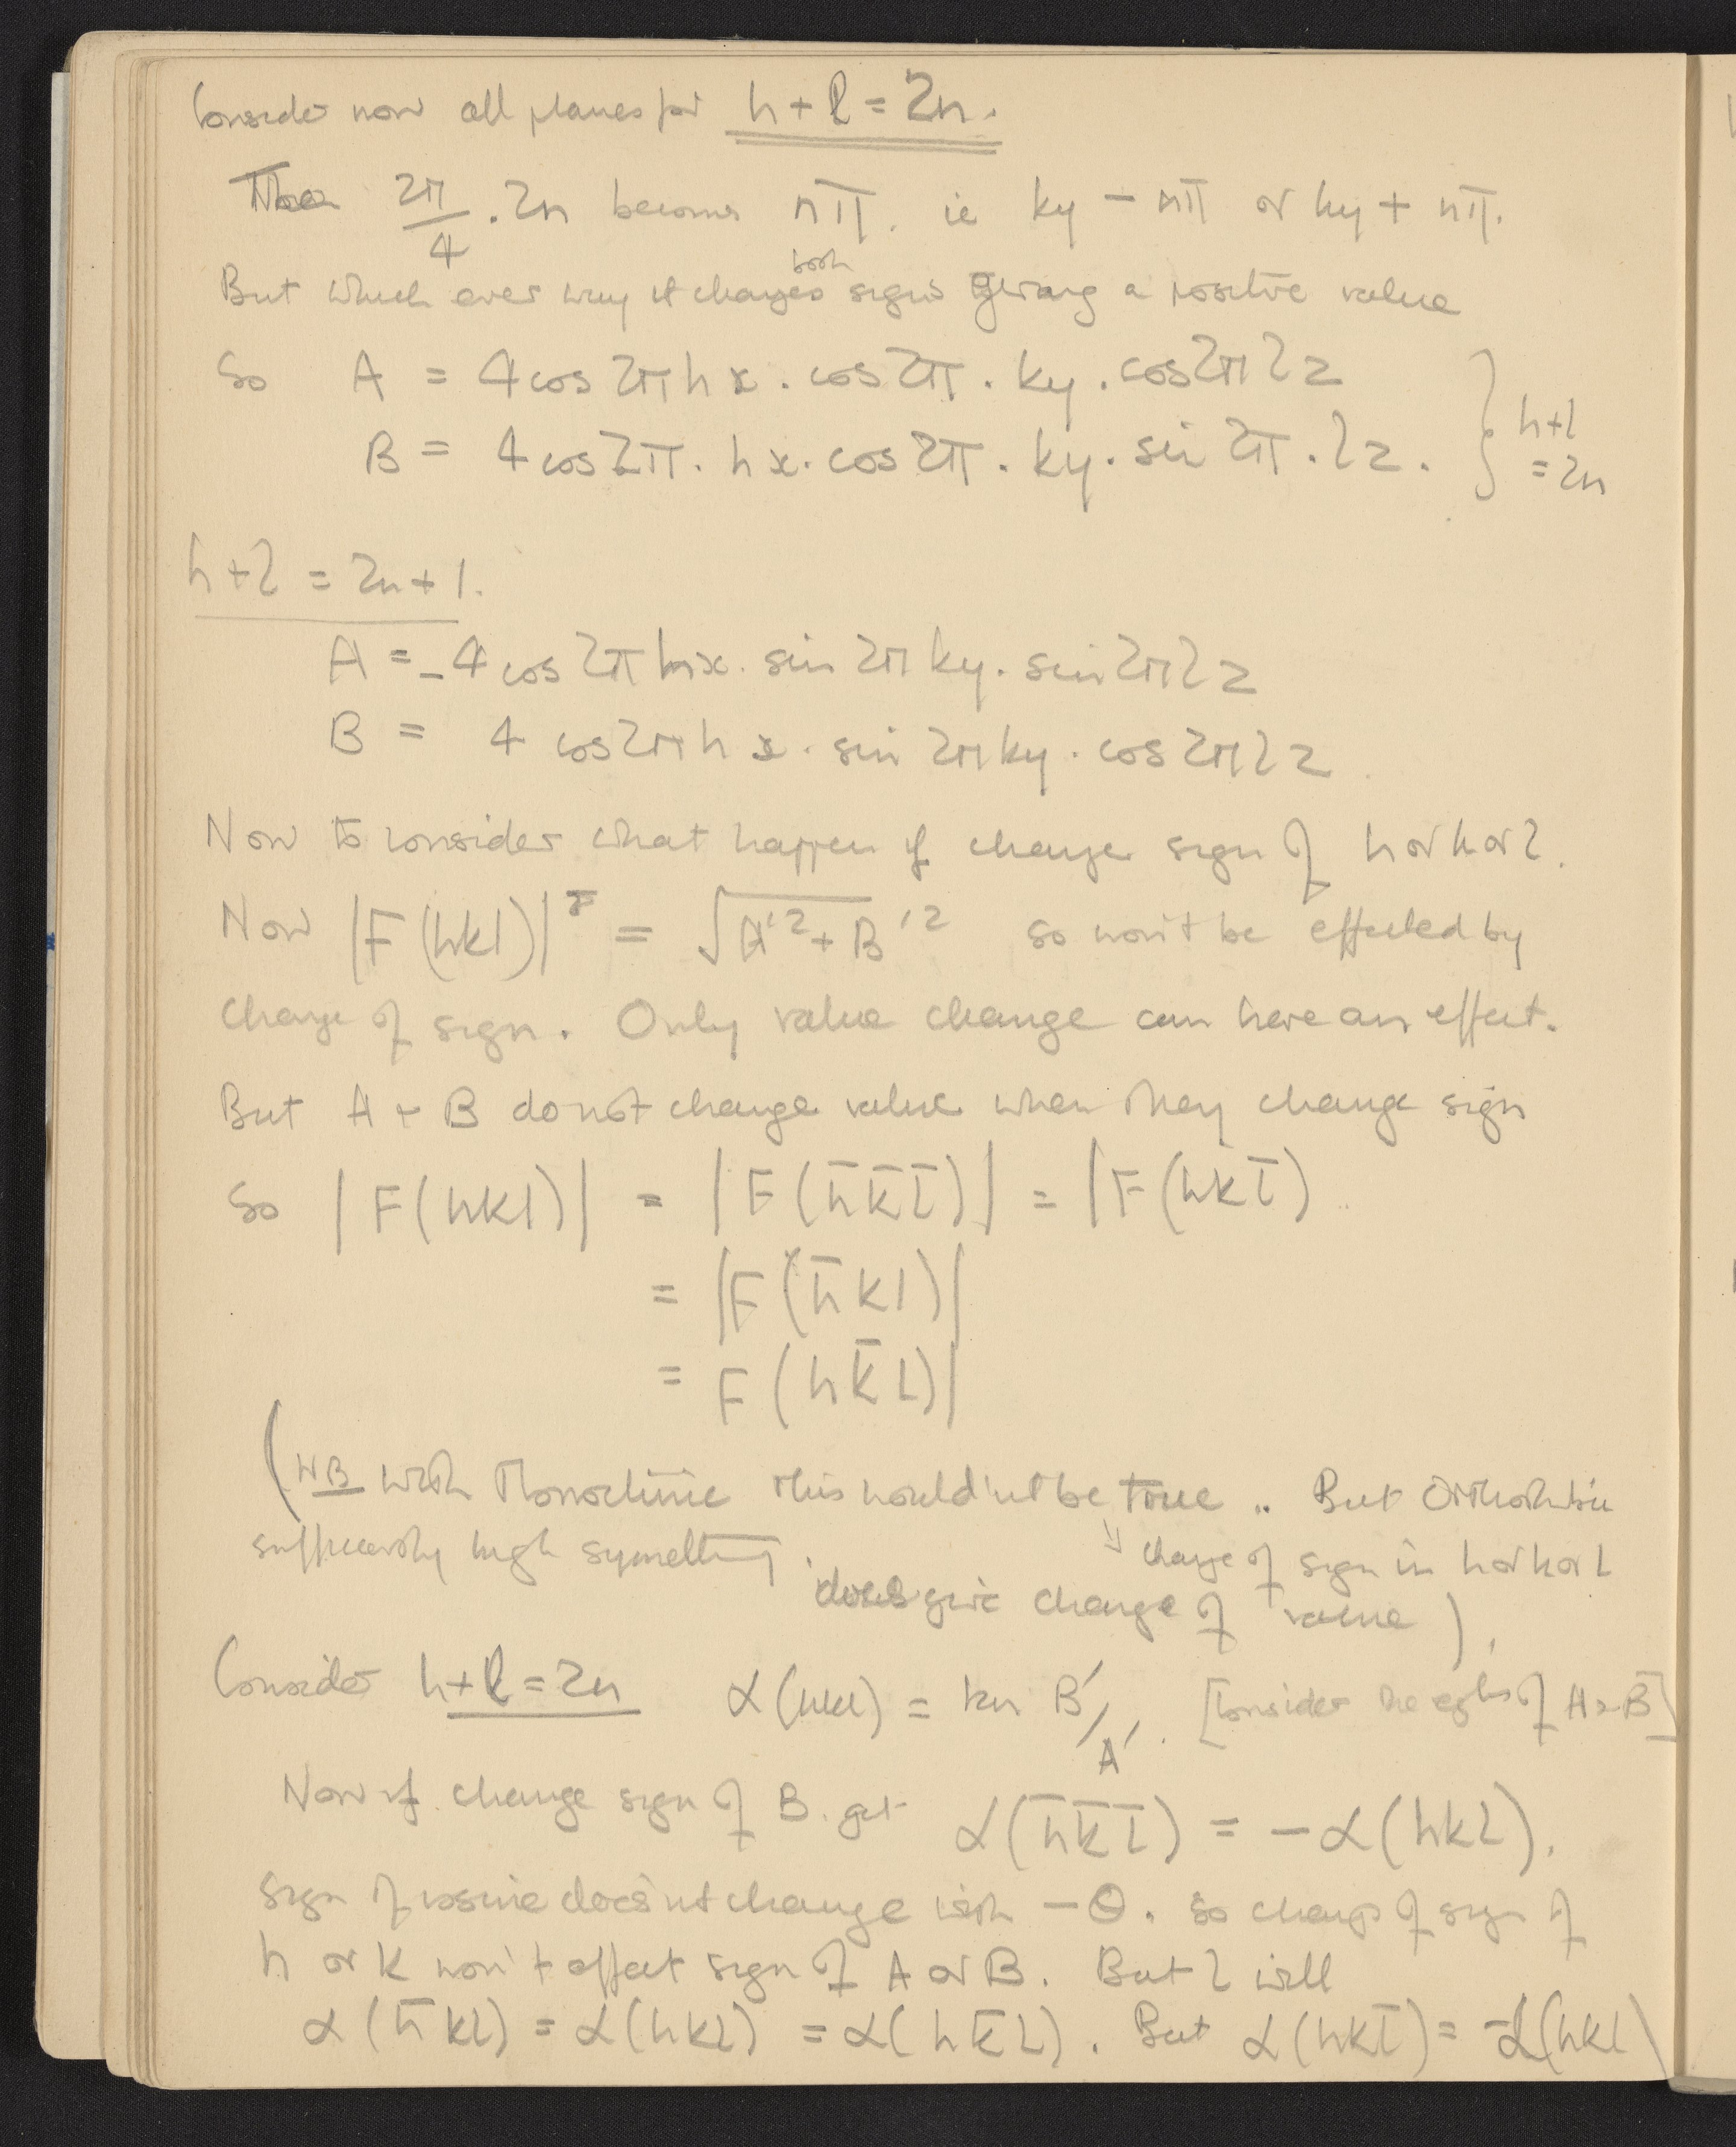 Consider now all planes for h + l = 2n.
Then 2π/4 . 2n becomes nπ. ie ky - nπ or ky + nπ.
But which ever way it changes both signs giving a positive value
So A = 4 cos 2π hx . cos 2π . ky . cos 2π lz
B = 4 cos 2π . hx . cos 2π . ky . sin 2π . lz . } h+l = 2n
h + l = 2n + 1.
A = - 4 cos 2π hx . sin 2π ky . sin 2π lz
B = 4 cos 2π h x . sin 2π ky . cos 2π lz
Now to consider what happen if change sign of h or k or l.
Now |F(hkl)| = √A'² + B'² so won't be effected by
change of sign. Only value change can have an effect.
But A + B do not change value when they change sign
So |F(hkl)| = |F(h̄k̄l̄)| = |F(hkl̄)
= |F(h̄kl)|
= F(hk̄l)|
(NB with Monoclinic this would'nt be true .. But Orthorhombic
sufficiently high symmetry.
change of sign in h or k or l
does give change of value).
Consider h + l = 2n α(hkl) = tan B'/A'. [Consider the of A + B]
Now if change sign of B. get α(h̄k̄l̄) = -α(hkl).
Sign of cosine does'nt change with -θ. So change of sign of
h or k won't effect sign of A or B. But l will
α(h̄kl) = α(hkl) = α(hk̄l). But α(hkl̄) = -α(hkl)